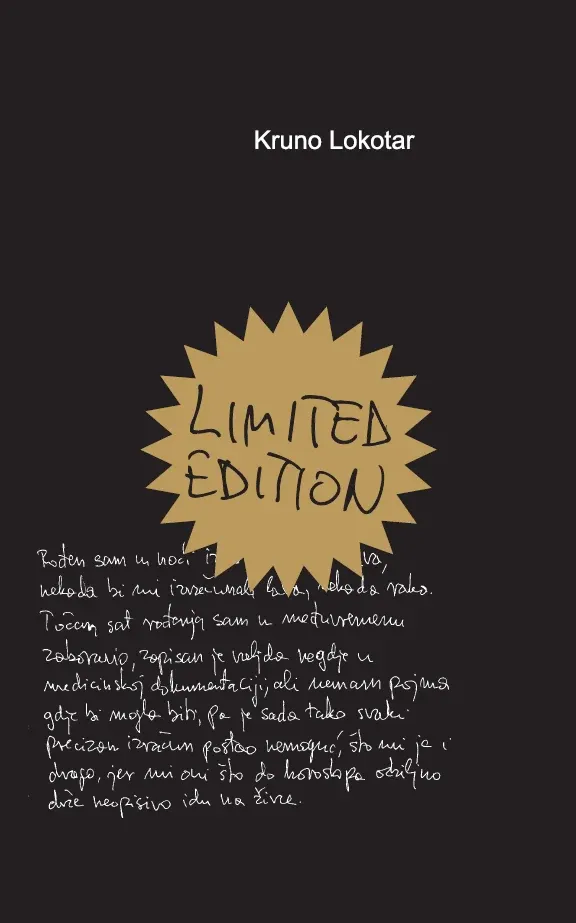 Kruno Lokotar
LIMITED
EDITION
Rođen sam u noći
nekada bi mi izračunali ovako.
Točan sat rođenja sam u međuvremenu
zaboravio, zapisan je valjda negdje u
medicinskoj dokumentaciji, ali nemam pojma
gdje bi mogla biti, pa je sada tako svaki
precizan izračun postao nemoguć, što mi je i
drago, jer mi oni što do horoskopa ozbiljno
drže neopisivo idu na živce.